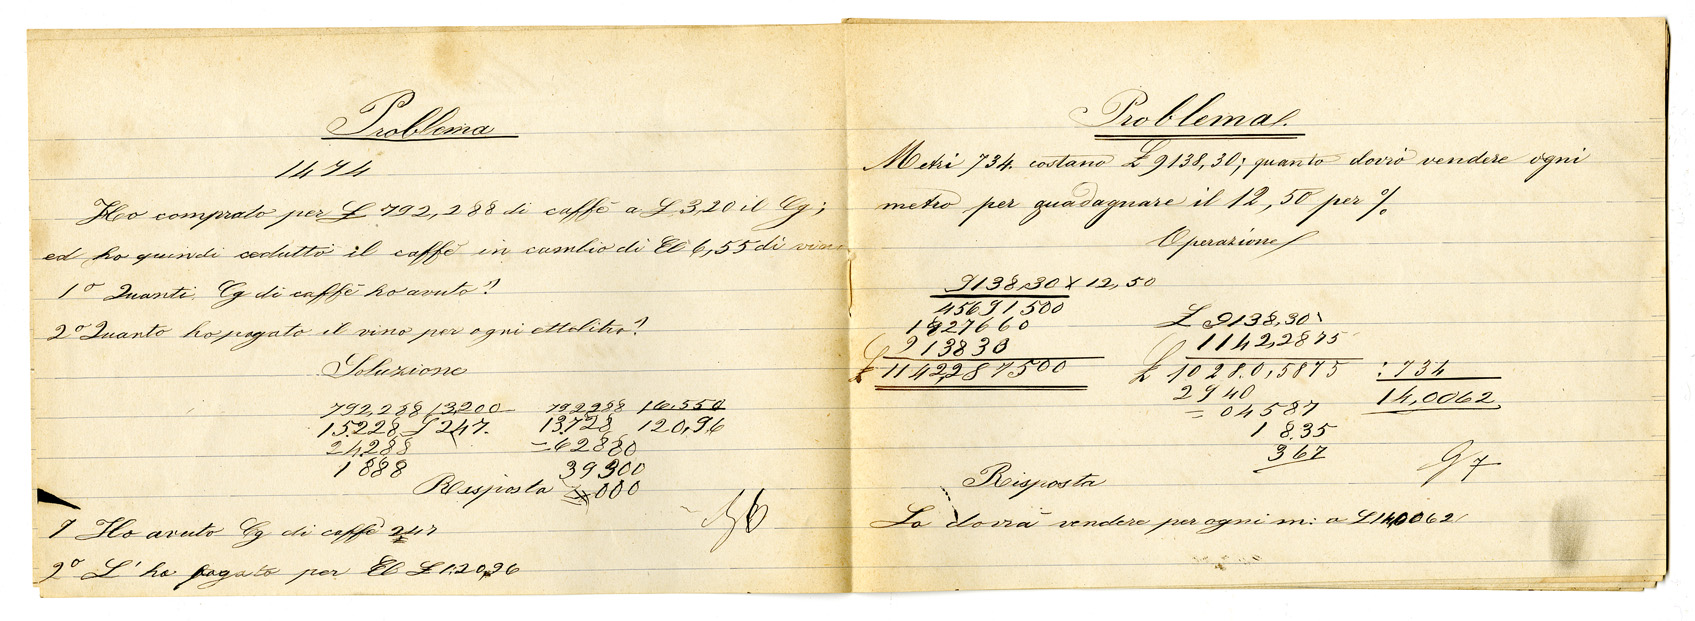 Problema
1474
Ho comprato per £ 792,288 di caffè a £ 3,20 il Cg;
ed ho quindi cedutto il caffè in cambio di El 6,55 di vino
1º Quanti Cg di caffè ho avuto?
2º Quanto ho pagato il vino per ogni ettolitro?
Soluzione
792,288 / 3,200 792288 / 6,550
15228 £ 247. 13728 120,96
24288 = 62880
1888 39300
Risposta = 000
1 Ho avuto Cg di caffè 247
2º L'ho pagato per El £ 120,96
Problema
Metri 734 costano £ 9138,30; quanto dovrò vendere ogni
metro per guadagnare il 12,50 per %
Operazione
9138,30 x 12,50
45691500
1827660 £ 9138,30
913830 1142,2875
£ 1142,287500 £ 10280,5875 : 734
2940 14,0062
= 04587
1835
367
Risposta
Lo dovrà vendere per ogni m: a £ 14,0062